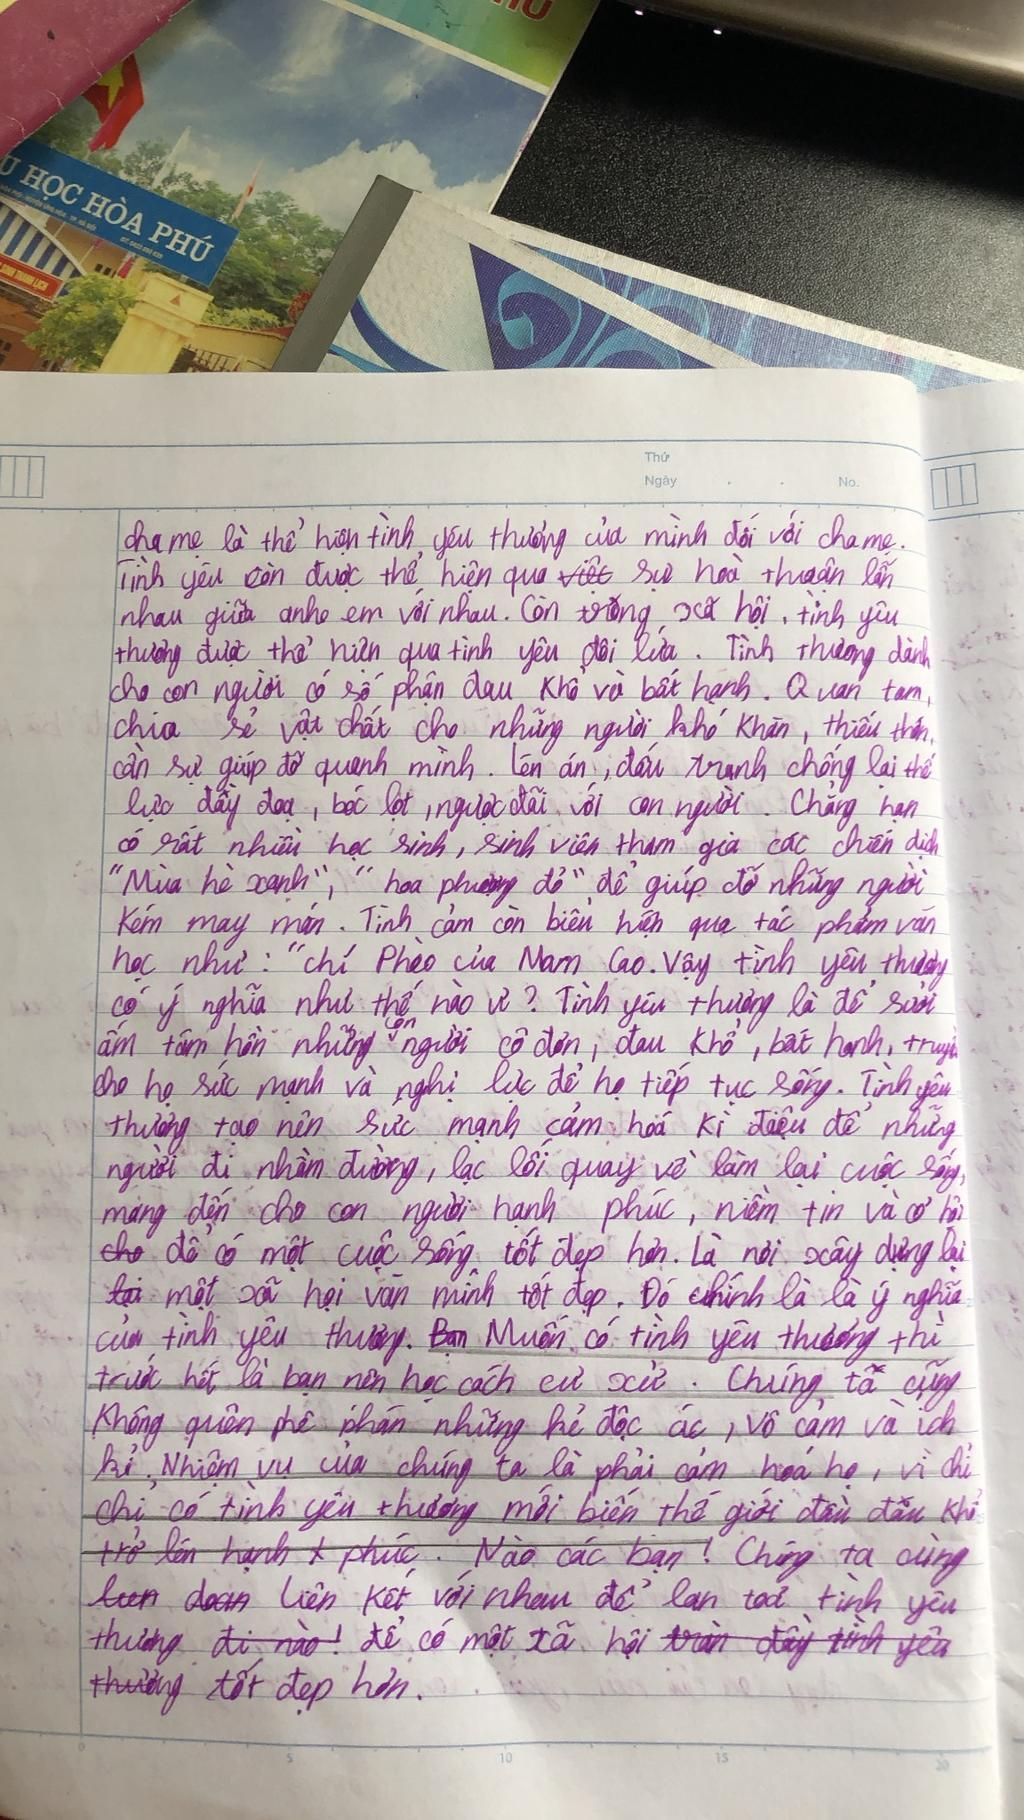 HU
U HỌC HÒA PHÚ
Thứ
Ngày . . No.
cha mẹ là thể hiện tình yêu thương của mình đối với cha mẹ.
Tình yêu còn được thể hiện qua việc sự hoà thuận lẫn
nhau giữa anh em với nhau. Còn trong xã hội, tình yêu
thương được thể hiện qua tình yêu đôi lứa. Tình thương dành
cho con người có số phận đau khổ và bất hạnh. Quan tâm,
chia sẻ vật chất cho những người khó khăn, thiếu thốn,
cần sự giúp đỡ quanh mình. Lên án, đấu tranh chống lại thế
lực đầy đoạ, bóc lột, ngược đãi với con người. Chẳng hạn
có rất nhiều học sinh, sinh viên tham gia các chiến dịch
"Mùa hè xanh", "hoa phượng đỏ" để giúp đỡ những người
kém may mắn. Tình cảm còn biểu hiện qua tác phẩm văn
học như: "chí Phèo của Nam Cao. Vậy tình yêu thương
có ý nghĩa như thế nào vì? Tình yêu thương là để sưởi
ấm tâm hồn những con người cô đơn, đau khổ, bất hạnh, truyền
cho họ sức mạnh và nghị lực để họ tiếp tục sống. Tình yêu
thương tạo nên sức mạnh cảm hoá kì diệu để những
người đi nhầm đường, lạc lối quay về làm lại cuộc sống,
mang đến cho con người hạnh phúc, niềm tin và cơ hội
cho để có một cuộc sống tốt đẹp hơn. Là nơi xây dựng lại
lại một xã hội văn minh tốt đẹp. Đó chính là là ý nghĩa
của tình yêu thương. Bạn Muốn có tình yêu thương thì
trước hết là bạn nên học cách cư xử. Chúng ta cũng
không quên phê phán những kẻ độc ác, vô cảm và ích
kỉ. Nhiệm vụ của chúng ta là phải cảm hoá họ, vì chỉ
chỉ có tình yêu thương mới biến thế giới đầu đầu khổ
trở lên hạnh phúc. Nào các bạn! Chúng ta cùng
liên kết với nhau để lan toả tình yêu
thương đi nào! để có một xã hội tràn đầy tình yêu
thương tốt đẹp hơn.
0 5 10 15 20